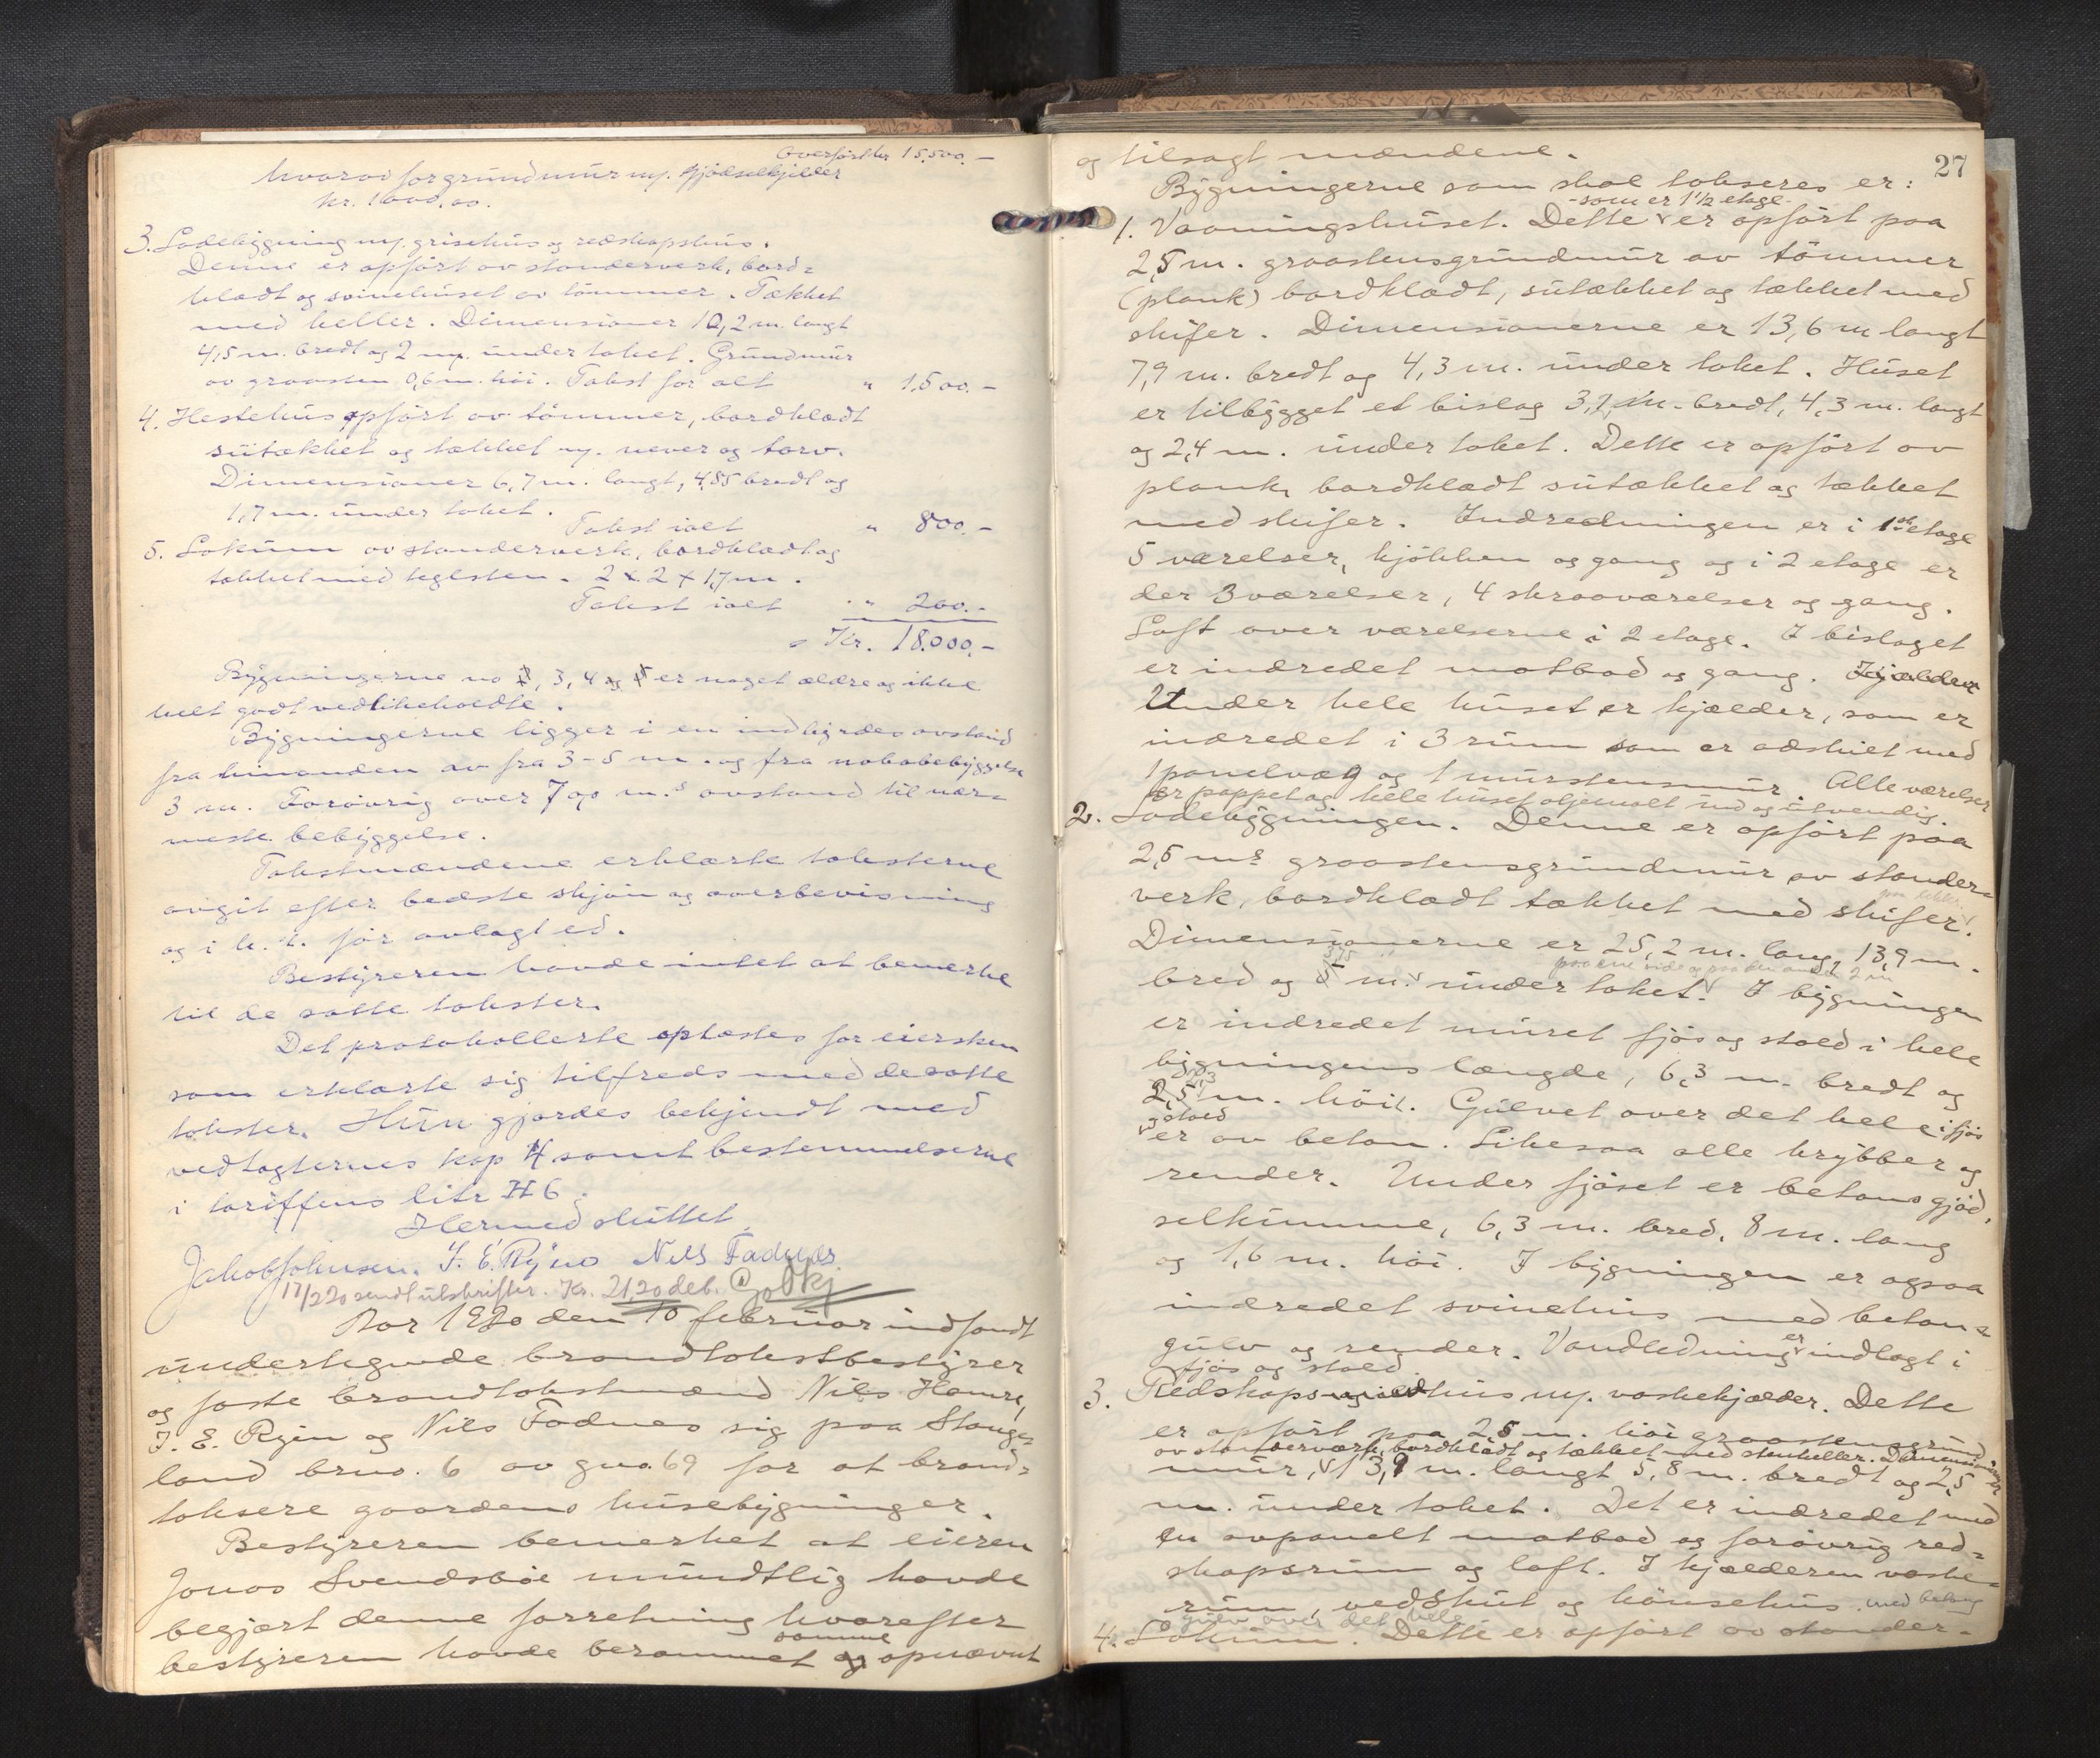 Overført kr 15.500.-
hvorav for grundmur m/. gjødselkjelder
kr. 1000,00.
3. Ladebygning m/. grisehus og redskapshus.
Denne er opført av standerverk, bord-
klædt og svinehuset av tømmer. Tækket
med heller. Dimensioner 10,2 m. langt
4,5 m. bredt og 2 m. under taket. Grundmur
av graasten 0,6 m. høi. Takst for alt " 1500.-
4. Hestehus opført av tømmer, bordklædt
sutækket og tækket m/. never og torv.
Dimensioner 6,7 m. langt, 4,85 bredt og
1,7 m. under taket.
Takst ialt " 800.-
5. Lokum av standerverk, bordklædt og
tækket med teglsten. 2 x 2 x 1,7 m.
Takst ialt " 200.-
Kr. 18.000.-
Bygningerne no 3, 4 er noget ældre og ikke
helt godt vedlikeholdte.
Bygningerne ligger i en indbyrdes avstand
fra hinanden av fra 3-5 m. og fra nabobebyggelse
3 m. Forøvrig over 700 m.s avstand til nær-
meste bebyggelse.
Takstmændene erklærte taksterne
avgit efter bedste skjøn og overbevisning
og i h. t. før avlagt ed.
Bestyreren havde intet at bemerke
til de satte takster.
Det protokollerte oplæstes for eiersken
som erklærte sig tilfreds med de satte
takster. Hun gjordes bekjendt med
vedtægternes kap 4 samt bestemmelserne
i tariffens litr H 6.
Hermed sluttet.
Jakob Johnsen. I. E. Ryen Nils Fadnes
17/2 20 sendt utskrifter. Kr. 21,20 deb.
Aar 1920 den 10 februar indfandt
undertegnede brandtakstbestyrer
og faste brandtakstmænd Nils Hamre,
I. E. Ryen og Nils Fadnes sig paa Stange-
land brno. 6 av gno. 69 for at brand-
taksere gaardens husebygninger.
Bestyreren bemerket at eieren
Jonas Svendsbøe mundtlig havde
begjært denne forretning hvorefter
samme
bestyreren havde berammet og opnævnt
27
og tilsagt mændene.
Bygningerne som skal takseres er:
- som er 1 1/2 etage -
1. Vaaningshuset. Dette er opført paa
2,5 m. graastensgrundmur av tømmer
(plank) bordklædt, sutækket og tækket med
skifer. Dimensionerne er 13,6 m langt
7,9 m. bredt og 4,3 m. under taket. Huset
er tilbygget et bislag 3,7 m. bredt, 4,3 m. langt
og 2,4 m. under taket. Dette er opført av
plank, bordklædt sutækket og tækket
med skifer. Indredningen er i 1ste etage
5 værelser, kjøkken og gang og i 2 etage er
der 3 værelser, 4 skraaværelser og gang.
Loft over værelserne i 2 etage. I bislaget
er indredet matbod og gang. Kjælder
Under hele huset er kjælder, som er
indredet i 3 rum som er adskilt med
1 panelvæg og 1 murstensmur. Alle værelser
er pappet og hele huset oljemalt ind og utvendig.
2. Ladebygningen. Denne er opført paa
2,5 ms graastensgrundmur av stander-
verk, bordklædt tækket med skifer.
Dimensionerne er 25,2 m. lang, 13,9 m.
3,75
paa ene side og paa den anden 2 m
bred og 5 m. under taket. I bygningen
er indredet muret fjøs og stald i hele
bygningens længde, 6,3 m. bredt og
2,5 m. høit. Gulvet over det hele i fjøs
og stald
er av beton. Likesaa alle krybber og
render. Under fjøset er betons gjød-
selkumme, 6,3 m. bred, 8 m. lang
og 1,6 m. høi. I bygningen er ogsaa
indredet svinehus med beton-
er
gulv og render. Vandledning indlagt i
fjøs og stald.
3. Redskapshus m/. vaskekjælder. Dette
er opført paa 2,5 m. høi graastensgrund
av standerværk, bordklædt og tækket med stenheller. Dimensioner
mur, 13,9 m. langt 5,8 m. bredt og 2,5
m. under taket. Det er indredet med
en avpanelt matbod og forøvrig red-
skapsrum og loft. I kjælderen vaske-
rum, vedskut og hønsehus. med betong
gulv over det hele
4. Lokum. Dette er opført av stander-